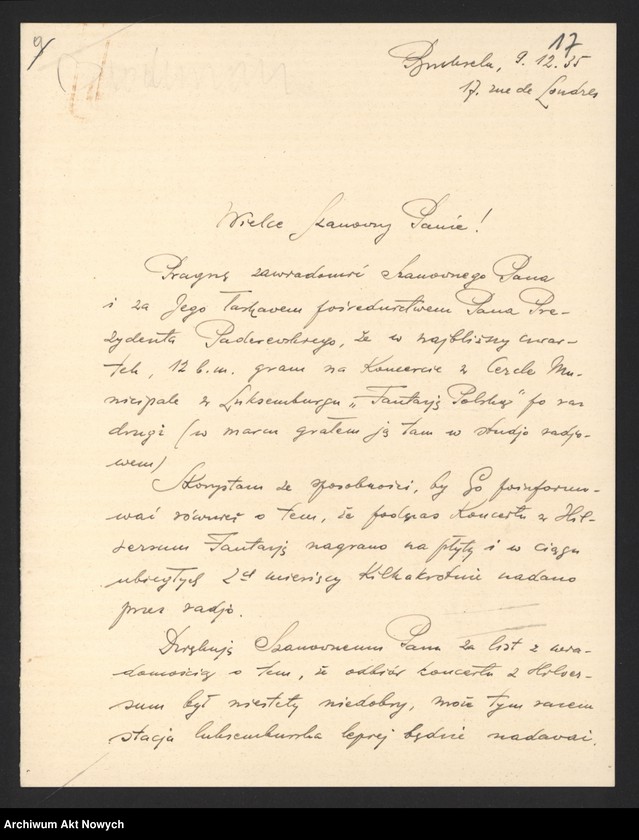 9
17
Bruksela, 9. 12. 35
17. rue de Londres
Wielce Szanowny Panie!
Pragnę zawiadomić Szanownego Pana
i za Jego łaskawem pośrednictwem Pana Pre-
zydenta Paderewskiego, że w najbliższy czwar-
tek, 12 b.m. gram na Koncercie w Cercle Mu-
nicipale w Luksemburgu „Fantazję Polską" po raz
drugi (w marcu grałem ją tam w studjo radjo-
wem)
Korzystam ze sposobności, by Go poinformo-
wać również o tem, że podczas Koncertu w Hil-
versum Fantazję nagrano na płyty i w ciągu
ubiegłych 2ch miesięcy kilkakrotnie nadano
przez radjo.
Dziękuję Szanownemu Panu za list z wia-
domością o tem, że odbiór koncertu z Hilver-
sum był niestety niedobry, może tym razem
stacja luksemburska lepiej będzie nadawać.
Archiwum Akt Nowych